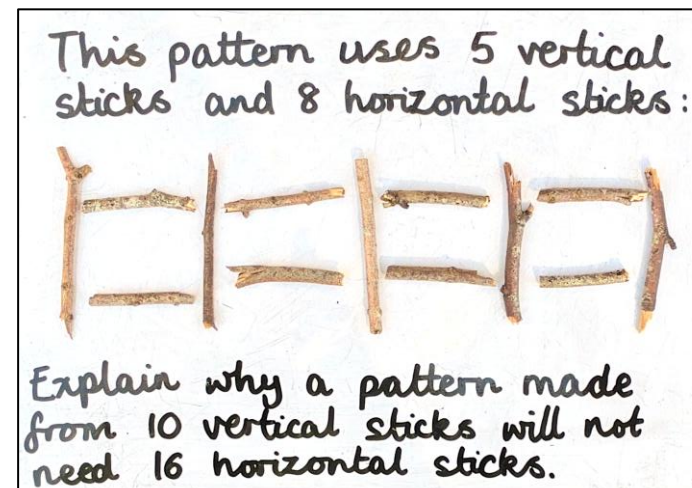 This pattern uses 5 vertical
sticks and 8 horizontal sticks:
Explain why a pattern made
from 10 vertical sticks will not
need 16 horizontal sticks.